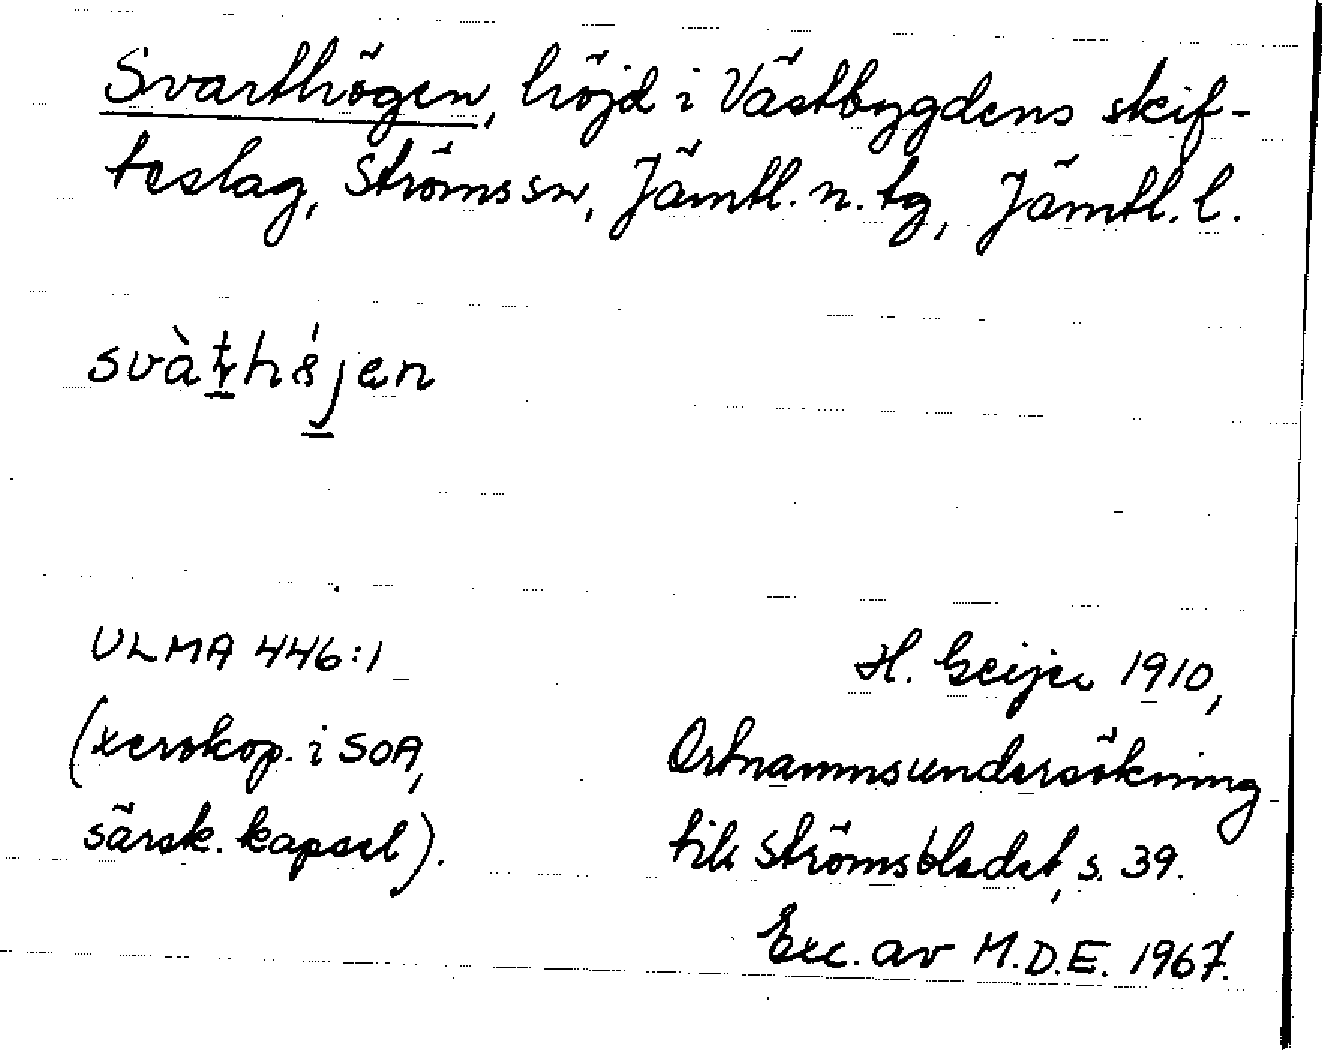 Svarthögen, höjd i Västbygdens skif-
teslag, Ströms sn, Jämtl. n. tg, Jämtl. l.
ULMA 446:1
H. Geijer 1910,
(xerokop. i SOA,
Ortnamnsundersökning
särsk. kapsel).
till Strömsbladet, s. 39.
Exc. av M.D.E. 1967.